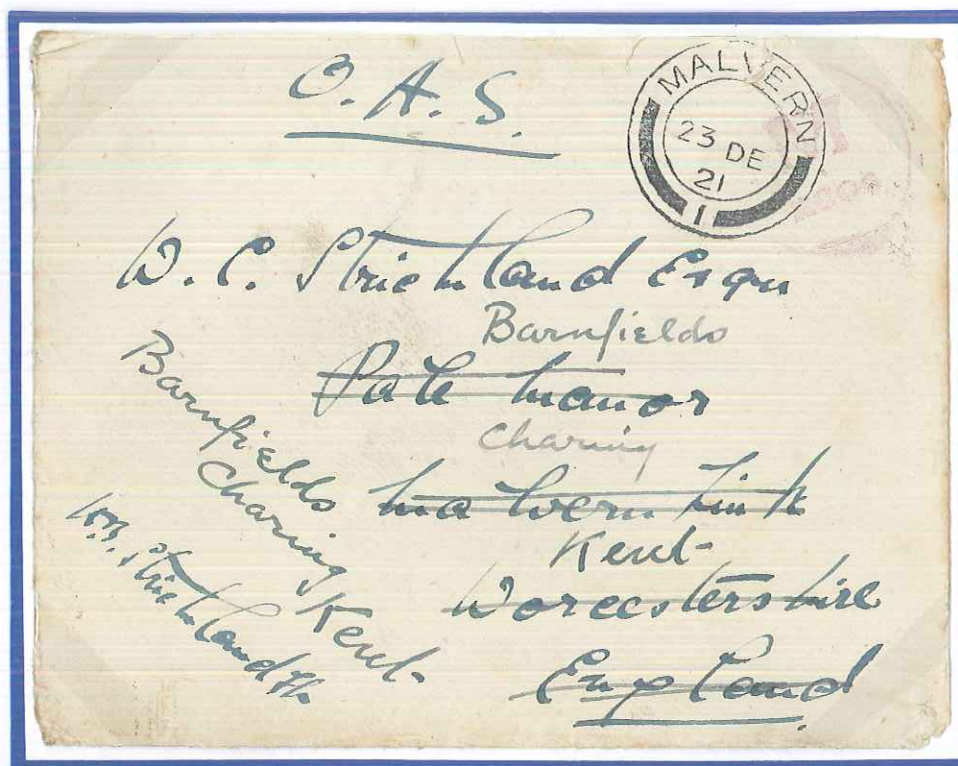 O. A. S.
MALVERN
23 DE
21
1
W. C. Strickland Esqre
Barnfields
Manor
Charing
Malvern Link
Kent
Worcestershire
England
Barnfields
Charing
Kent
Strickland